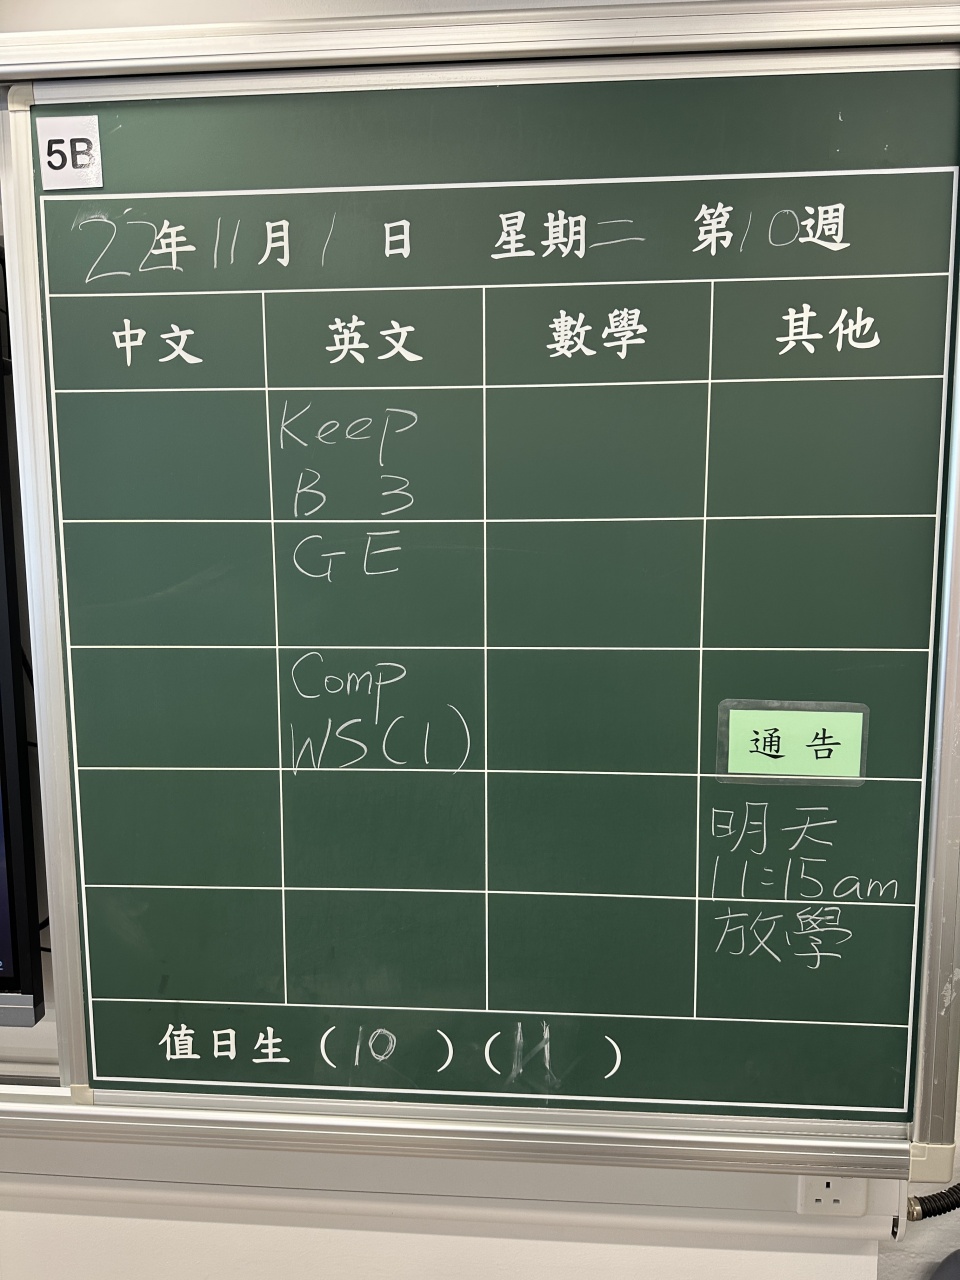 5B
22年11月1日 星期二 第10週
中文 英文 數學 其他
Keep
B 3
GE
Comp
WS(1)
通告
明天
11:15am
放學
值日生(10)(11)